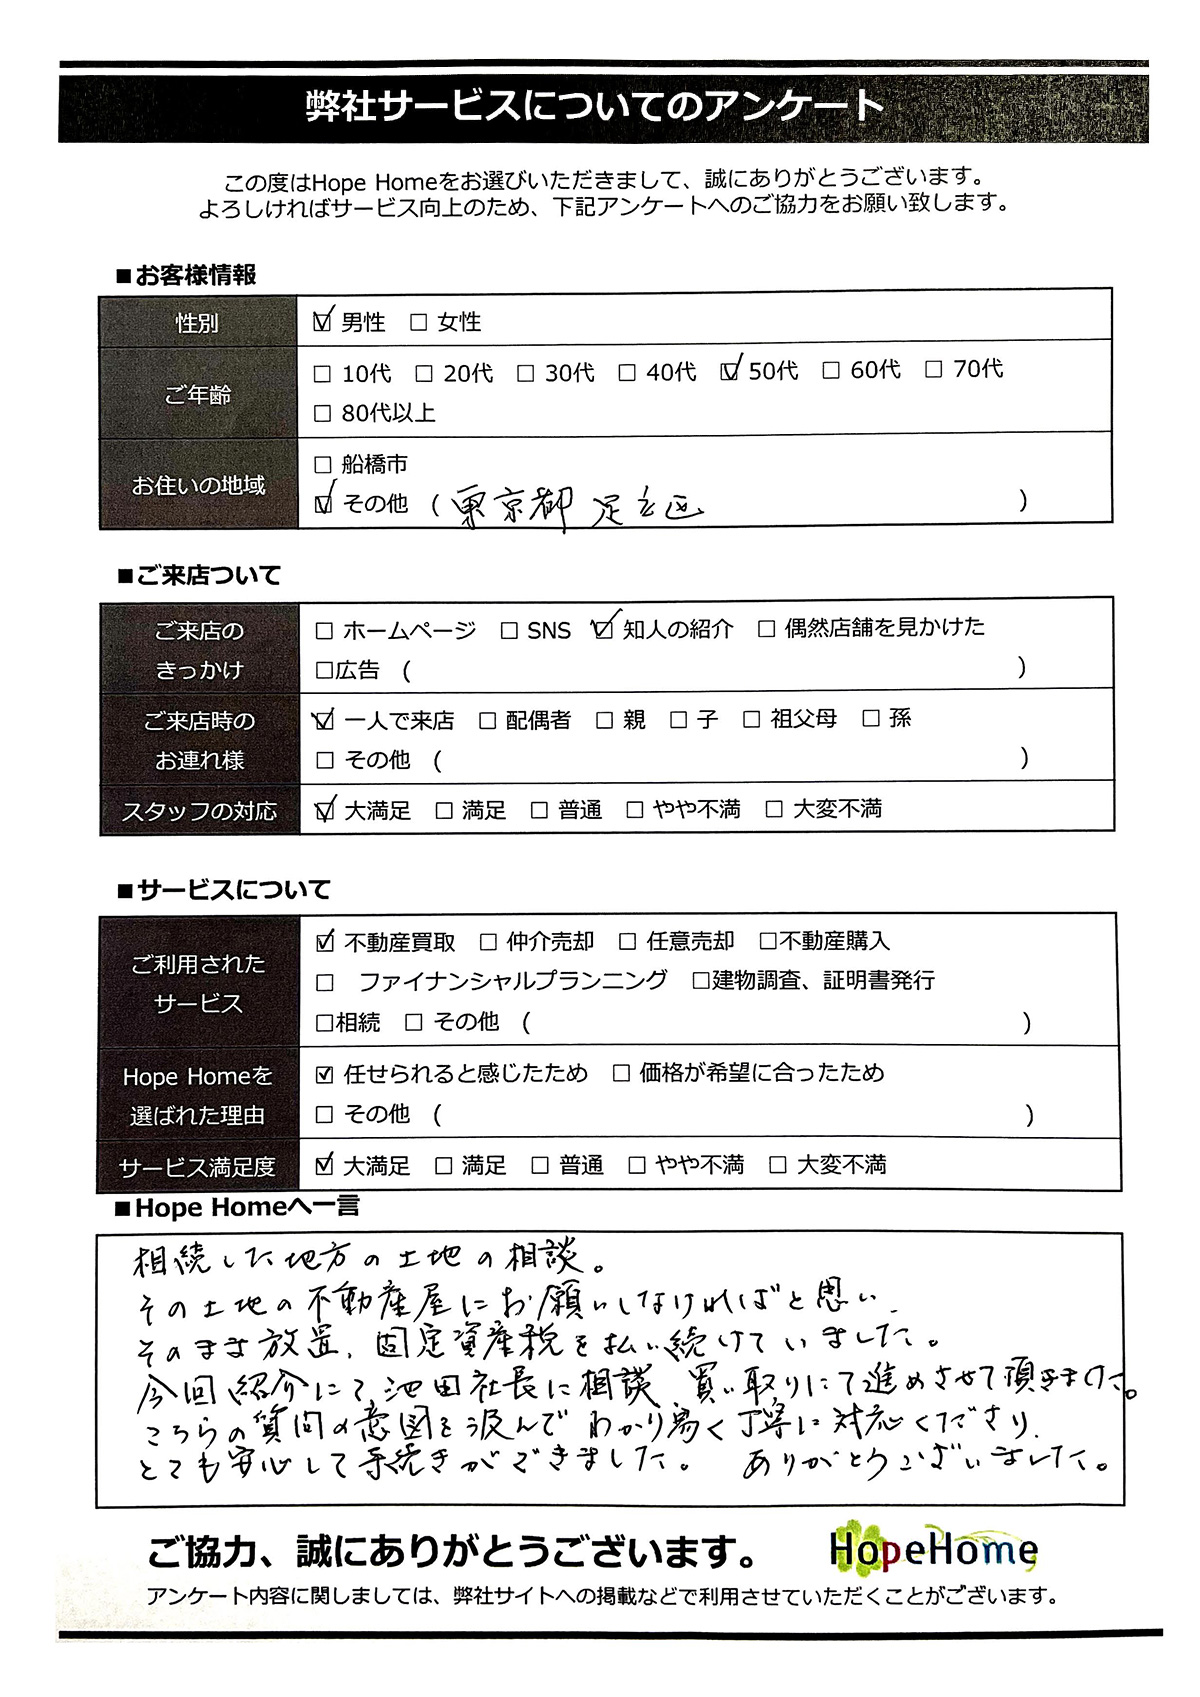 弊社サービスについてのアンケート
この度はHope Homeをお選びいただきまして、誠にありがとうございます。
よろしければサービス向上のため、下記アンケートへのご協力をお願い致します。
■お客様情報
性別
☑ 男性 □ 女性
ご年齢
□ 10代 □ 20代 □ 30代 □ 40代 ☑ 50代 □ 60代 □ 70代
□ 80代以上
お住いの地域
□ 船橋市
☑ その他 (東京都 足立区)
■ご来店ついて
ご来店の
きっかけ
□ ホームページ □ SNS ☑ 知人の紹介 □ 偶然店舗を見かけた
□広告 ( )
ご来店時の
お連れ様
☑ 一人で来店 □ 配偶者 □ 親 □ 子 □ 祖父母 □ 孫
□ その他 ( )
スタッフの対応
☑ 大満足 □ 満足 □ 普通 □ やや不満 □ 大変不満
■サービスについて
ご利用された
サービス
☑ 不動産買取 □ 仲介売却 □ 任意売却 □不動産購入
□ ファイナンシャルプランニング □建物調査、証明書発行
□相続 □ その他 ( )
Hope Homeを
選ばれた理由
☑ 任せられると感じたため □ 価格が希望に合ったため
□ その他 ( )
サービス満足度
☑ 大満足 □ 満足 □ 普通 □ やや不満 □ 大変不満
■Hope Homeへ一言
相続した地方の土地の相談。
その土地の不動産屋にお願いしなければと思い、
そのまま放置、固定資産税を払い続けていました。
今回紹介にて池田社長に相談、買い取りにて進めさせて頂きました。
こちらの質問の意図を汲んで わかり易く丁寧に対応くださり、
とても安心して手続きができました。 ありがとうございました。
ご協力、誠にありがとうございます。
HopeHome
アンケート内容に関しましては、弊社サイトへの掲載などで利用させていただくことがございます。